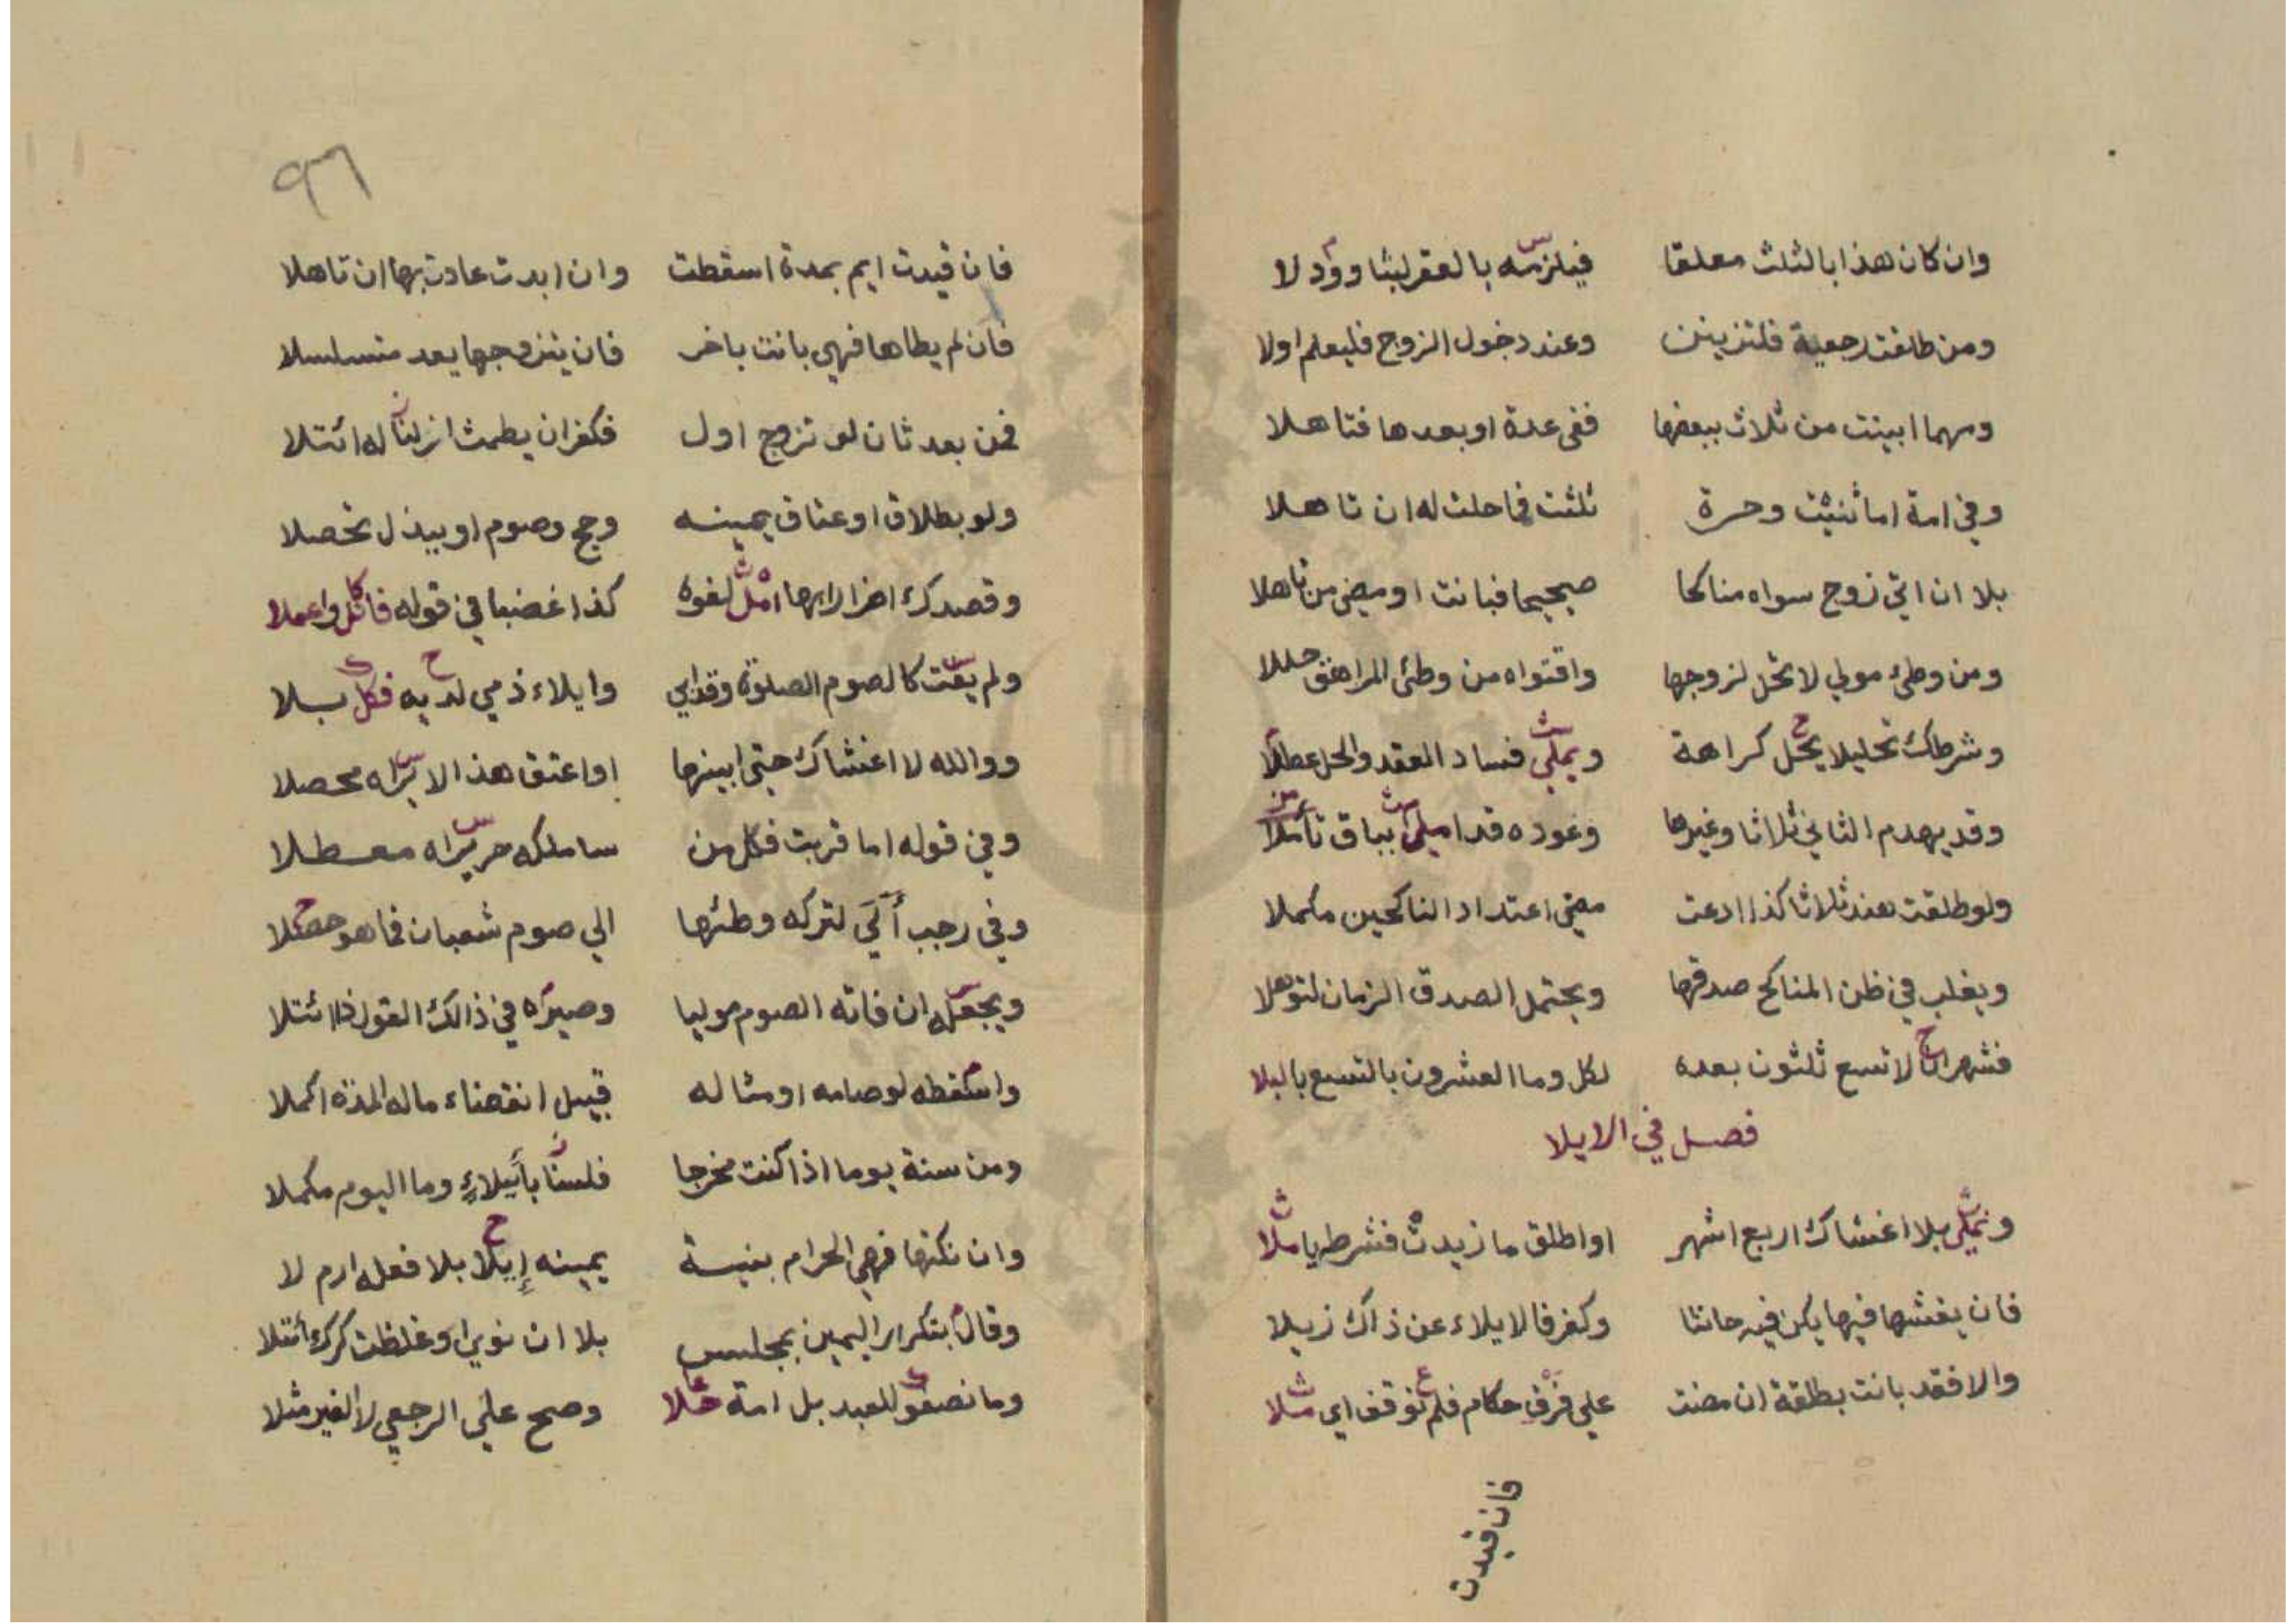 وان كان هذا بالثلث معلقا فيلزمه بالعقر لبثا وود لا
ومن طلقت رجعية فلتزينن وعند دخول الزوج فليعلم اولا
ومهما ابينت من ثلاث ببعضها ففي عدة او بعدها فتاهلا
وفي امة اما ثنيت وحرة ثلثت فما حلت له ان تاهلا
بلا ان اتي زوج سواه مناكحا صحيحا فبانت او مضي من تاهلا
ومن وطئ مولي لا تحل لزوجها وافتواه من وطئ المراهق حللا
وشرطك تحليلا يحل كراهة ويملي فساد العقد والحل عطلا
وقد يهدم الثاني ثلاثا وغيرها وعوده قد املي بباق تأملا
ولو طلقت هند ثلاثا كذا ادعت مضي اعتداد الناكحين مكملا
ويغلب في ظن المناكح صدقها ويحتمل الصدق الزمان لتوهلا
فشهران لا تسع ثلثون بعده لكل وما العشرون بالتسع بالبلا
فصل في الايلا
ونملي بلا اغشاك اربع اشهر او اطلق ما زيدت فشرط يا ملا
فان يغشها فيها يكن فيه حانثا وكفر فالايلاء عن ذاك زيلا
والا فقد بانت بطلقة ان مضت علي فرق حكام فلم توقف اي مثلا
فان قيدت
٩٦
فان قيدت ايم بمدة اسقطت وان ابدت عادت بها ان تاهلا
فان لم يطاها فهي بانت باخر فان يتزوجها يعد متسلسلا
فمن بعد ثان لو تزوج اول فكفر ان يطمث ازلنا له ائتلا
ولو بطلاق او عتاق يمينه وحج وصوم او ببذل تحصلا
وقصدك اضرارا بها امل لغوه كذا غضبا في قوله فاتل واعملا
ولم يفت كالصوم الصلوة وقد ابي وايلاء ذمي لديه فكل بلا
ووالله لا اغشاك حتي ابينها او اعتق هذا لا يراه محصلا
وفي قوله اما قربت فكل من ساملكه حر يراه معطلا
وفي رجب ألي لتركه وطئها الي صوم شعبان فما هو حصلا
ويجعله ان فاته الصوم موليا وصيره في ذالك القول ذا ائتلا
واسقطه لو صامه او مثاله قبيل انقضاء ماله المدة اكملا
ومن سنة يوما اذا كنت مخرجا فلسنا بأيلاء وما اليوم مكملا
وان نكتها فهي الحرام بنية يمينه إيلا بلا فعله ارم لا
وقالا بتكرار اليمين بمجلس بلا ان نوي او غلظت كرك أئتلا
وما نصفو للعبد بل امة خلا وصح علي الرجعي لا الغير مثلا